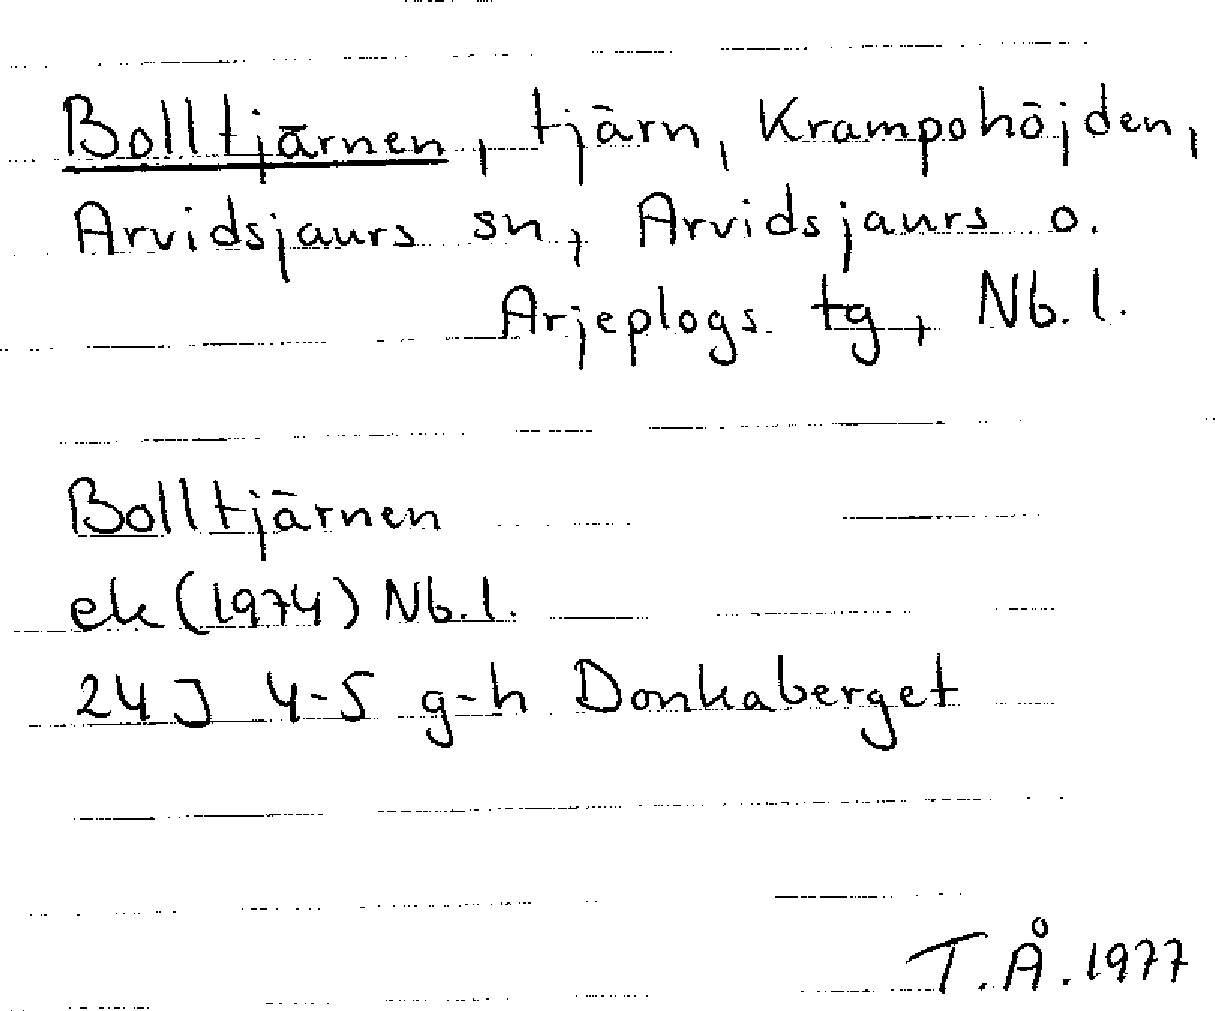 Bolltjärnen, tjärn, Krampohöjden,
Arvidsjaurs sn, Arvidsjaurs o.
Arjeplogs tg, Nb. l.
Bolltjärnen
ek (1974) Nb. l.
24 J 4-5 g-h Donkaberget
T. Å. 1977